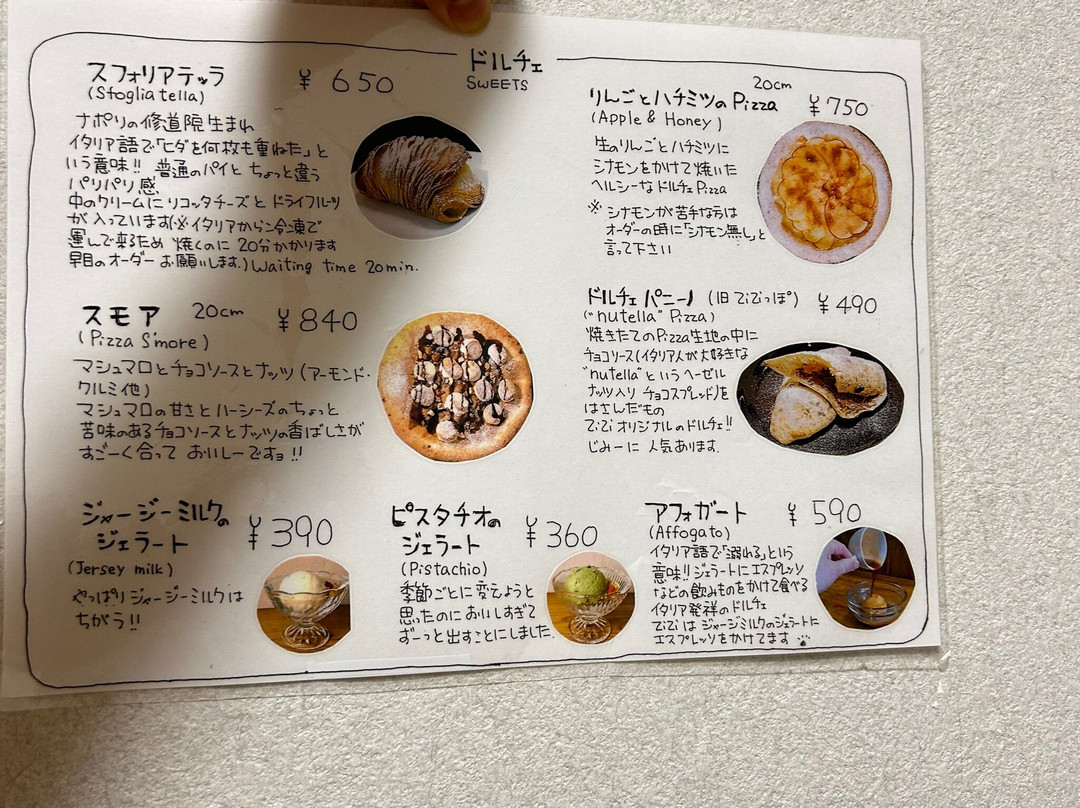 ドルチェ
SWEETS
スフォリアテッラ
(Sfogliatella)
¥650
ナポリの修道院生まれ
イタリア語で「ヒダを何枚も重ねた」と
いう意味!! 普通のパイと ちょっと違う
パリパリ感
中のクリームに リコッタチーズと ドライフルーツ
が入っています(※イタリアから冷凍で
運んで来るため 焼くのに 20分かかります
早目のオーダー お願いします。) Waiting time 20min.
りんごとハチミツのPizza
20cm
¥750
(Apple & Honey)
生のりんごとハチミツに
シナモンをかけて焼いた
ヘルシーなドルチェPizza
※ シナモンが苦手な方は
オーダーの時に「シナモン無し」と
言って下さい
スモア 20cm ¥840
(Pizza S'more)
マシュマロとチョコソースとナッツ(アーモンド・
クルミ他)
マシュマロの甘さとハーシーズのちょっと
苦味のあるチョコソースとナッツの香ばしさが
すごーく合って おいしーですョ!!
ドルチェ パニーノ (旧 でびでびっぽ) ¥490
("nutella" Pizza)
焼きたてのPizza生地の中に
チョコソース(イタリア人が大好きな
"nutella"というヘーゼル
ナッツ入り チョコスプレッド)を
はさんだもの
でびオリジナルのドルチェ!!
じみーに 人気あります。
ジャージーミルクの
ジェラート
¥390
(Jersey milk)
やっぱりジャージーミルクは
ちがう!!
ピスタチオの
ジェラート
¥360
(Pistachio)
季節ごとに変えようと
思ったのにおいしすぎて
ずーっと出すことにしました。
アフォガート ¥590
(Affogato)
イタリア語で「溺れる」という
意味!! ジェラートにエスプレッソ
などの飲みものをかけて食べる
イタリア発祥のドルチェ
でびは ジャージミルクのジェラートに
エスプレッソをかけてます